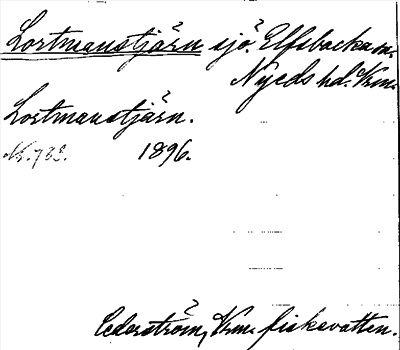 Lortmanstjärn sjö. Elfsbacka sn.
Nyeds hd. Vrm.
Lortmanstjärn.
1896.
Cederström, Vrm. fiskevatten.